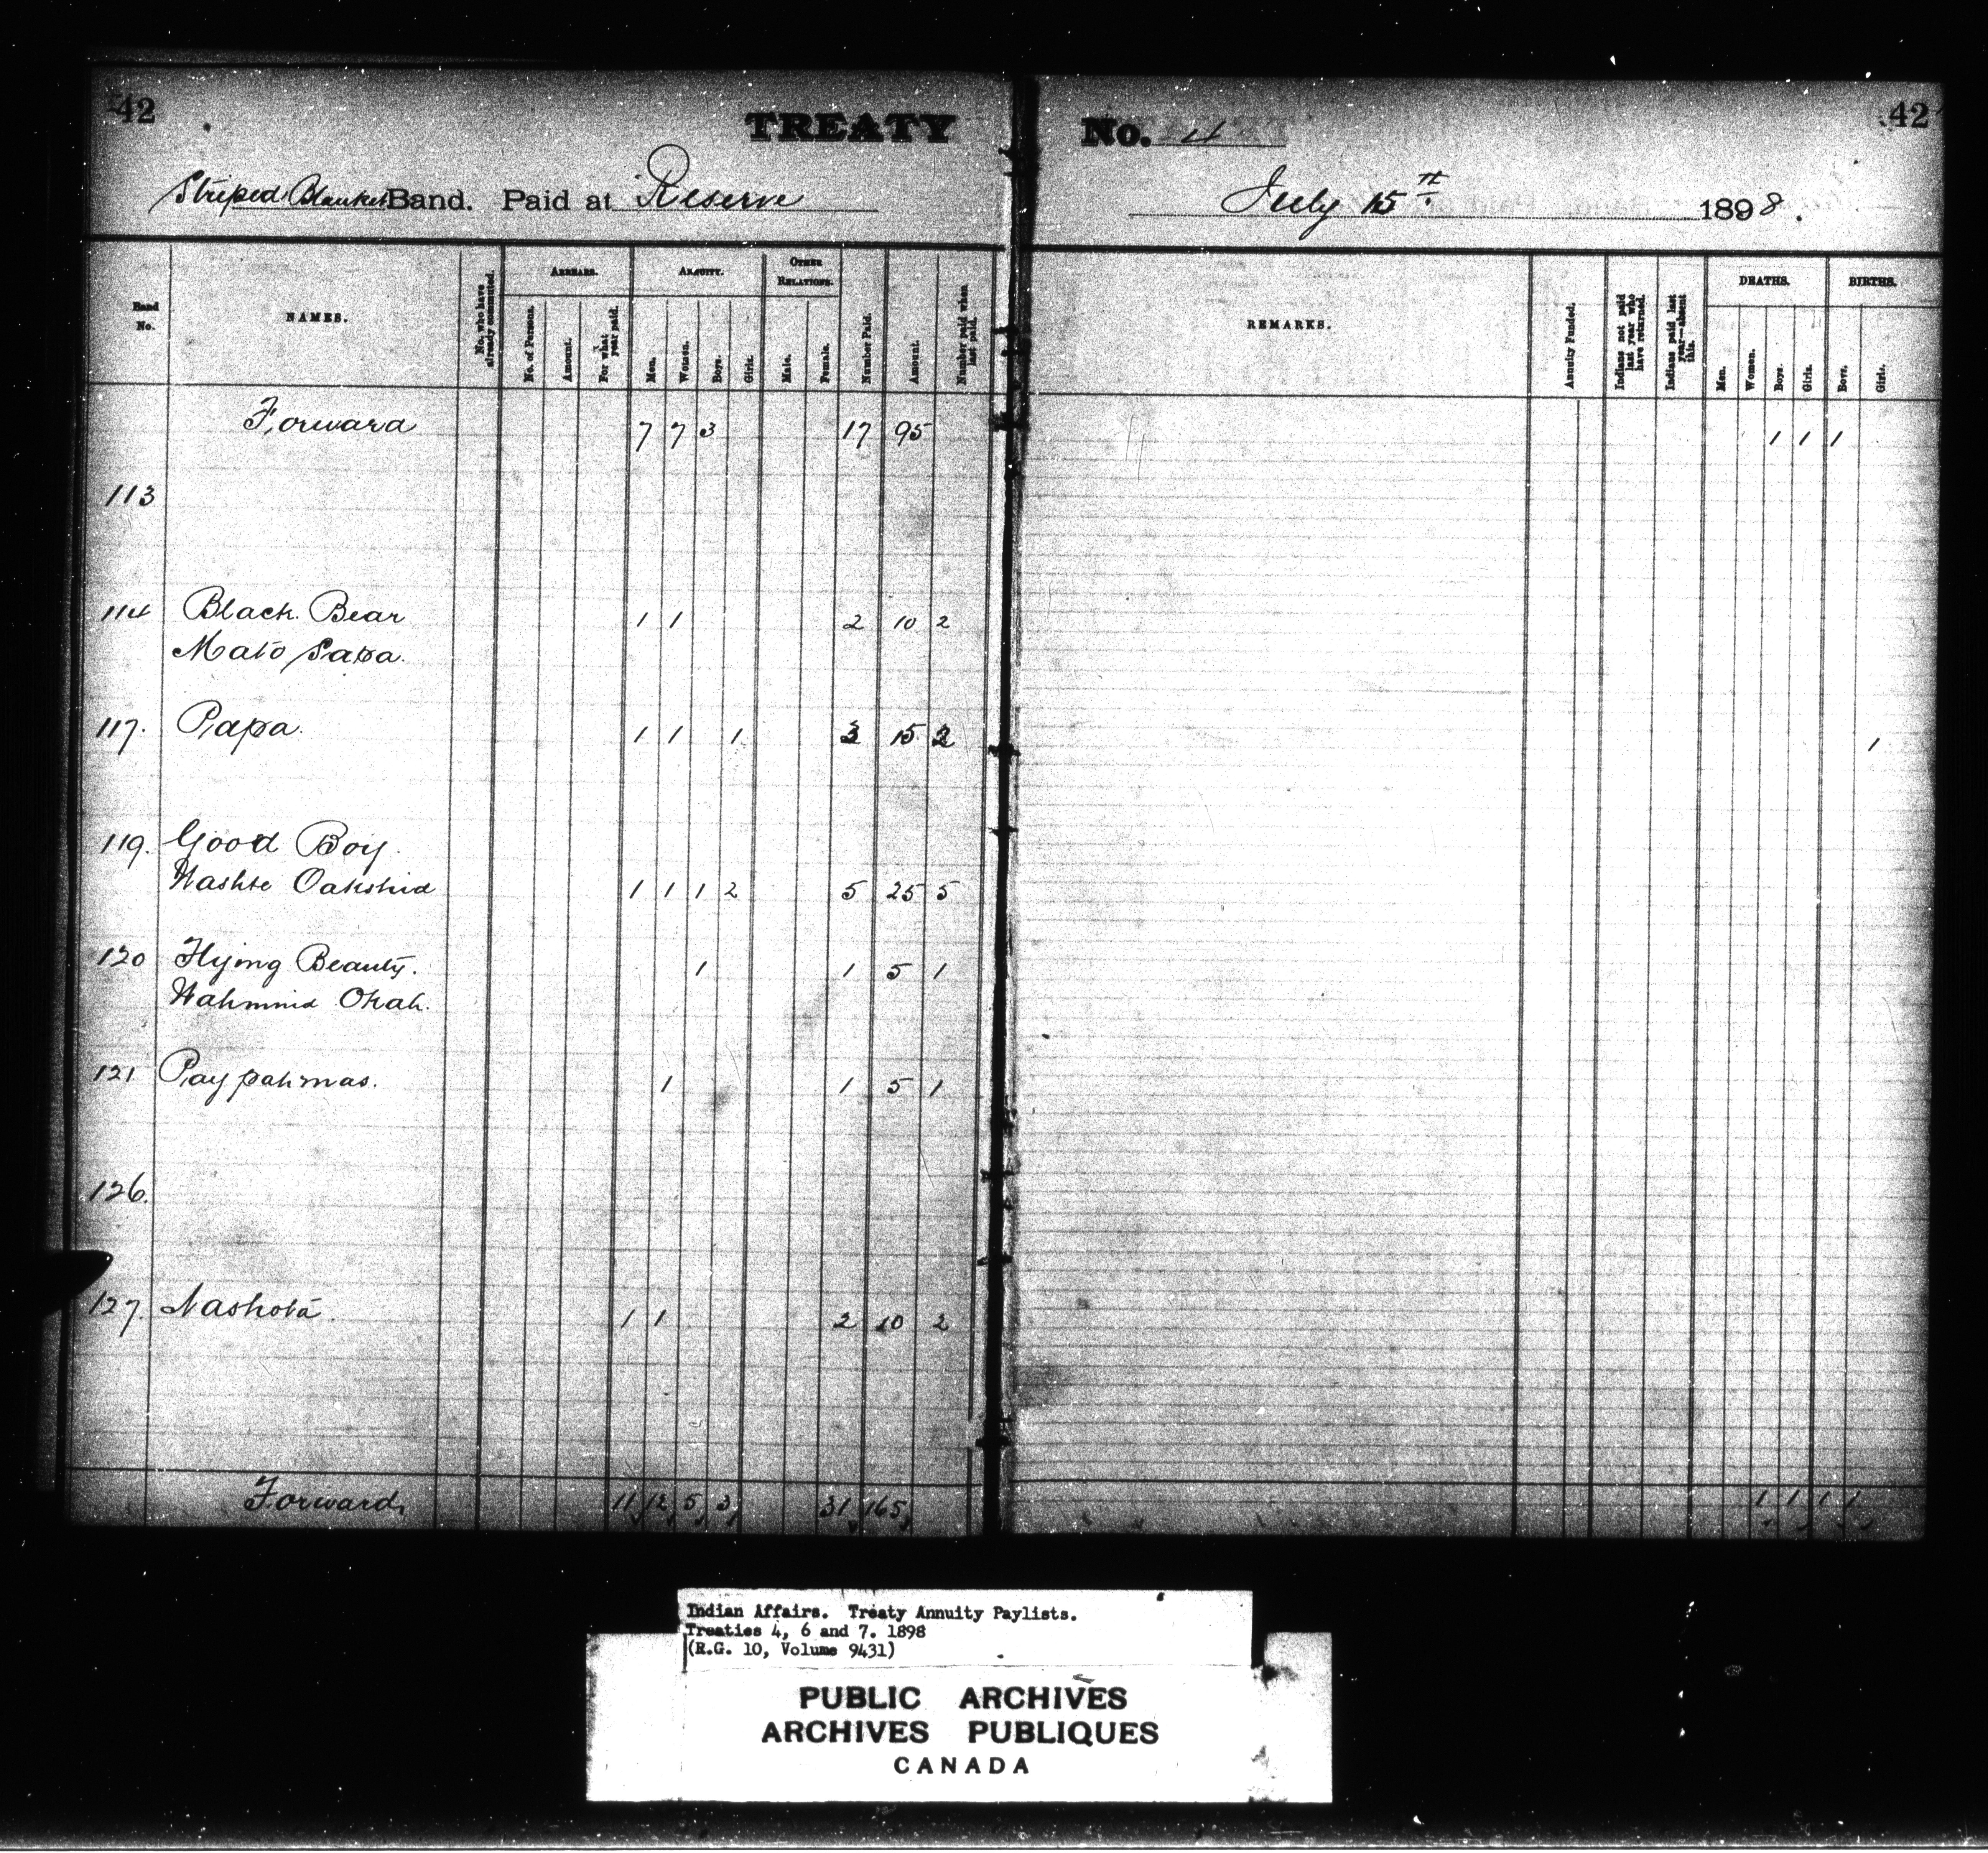 42
TREATY No. 4
42
Striped Blanket Band. Paid at Reserve
July 15th 1898.
Band No.
NAMES.
No. who have already commuted.
ARREARS.
No. of Persons.
Amount.
For what year paid.
ANNUITY.
Men.
Women.
Boys.
Girls.
OTHER RELATIONS.
Male.
Female.
Number Paid.
Amount.
Number paid when last paid.
REMARKS.
Annuity Funded.
Indians not paid last year who have returned.
Indians paid last year—absent this.
DEATHS.
Men.
Women.
Boys.
Girls.
BIRTHS.
Boys.
Girls.
Forward 7 7 3 17 95 1 1 1
113
114 Black Bear 1 1 2 10 2
Mato Sapa.
117. Papa. 1 1 1 3 15 2 1
119. Good Boy.
Washte Oakshid 1 1 1 2 5 25 5
120 Flying Beauty. 1 1 5 1
Wahmnid Okah.
121 Paypahmas. 1 1 5 1
126.
127. Nashota. 1 1 2 10 2
Forward, 11 12 5 3 31 165 1 1 1 1
Indian Affairs. Treaty Annuity Paylists.
Treaties 4, 6 and 7. 1898
(R.G. 10, Volume 9431)
PUBLIC ARCHIVES
ARCHIVES PUBLIQUES
CANADA